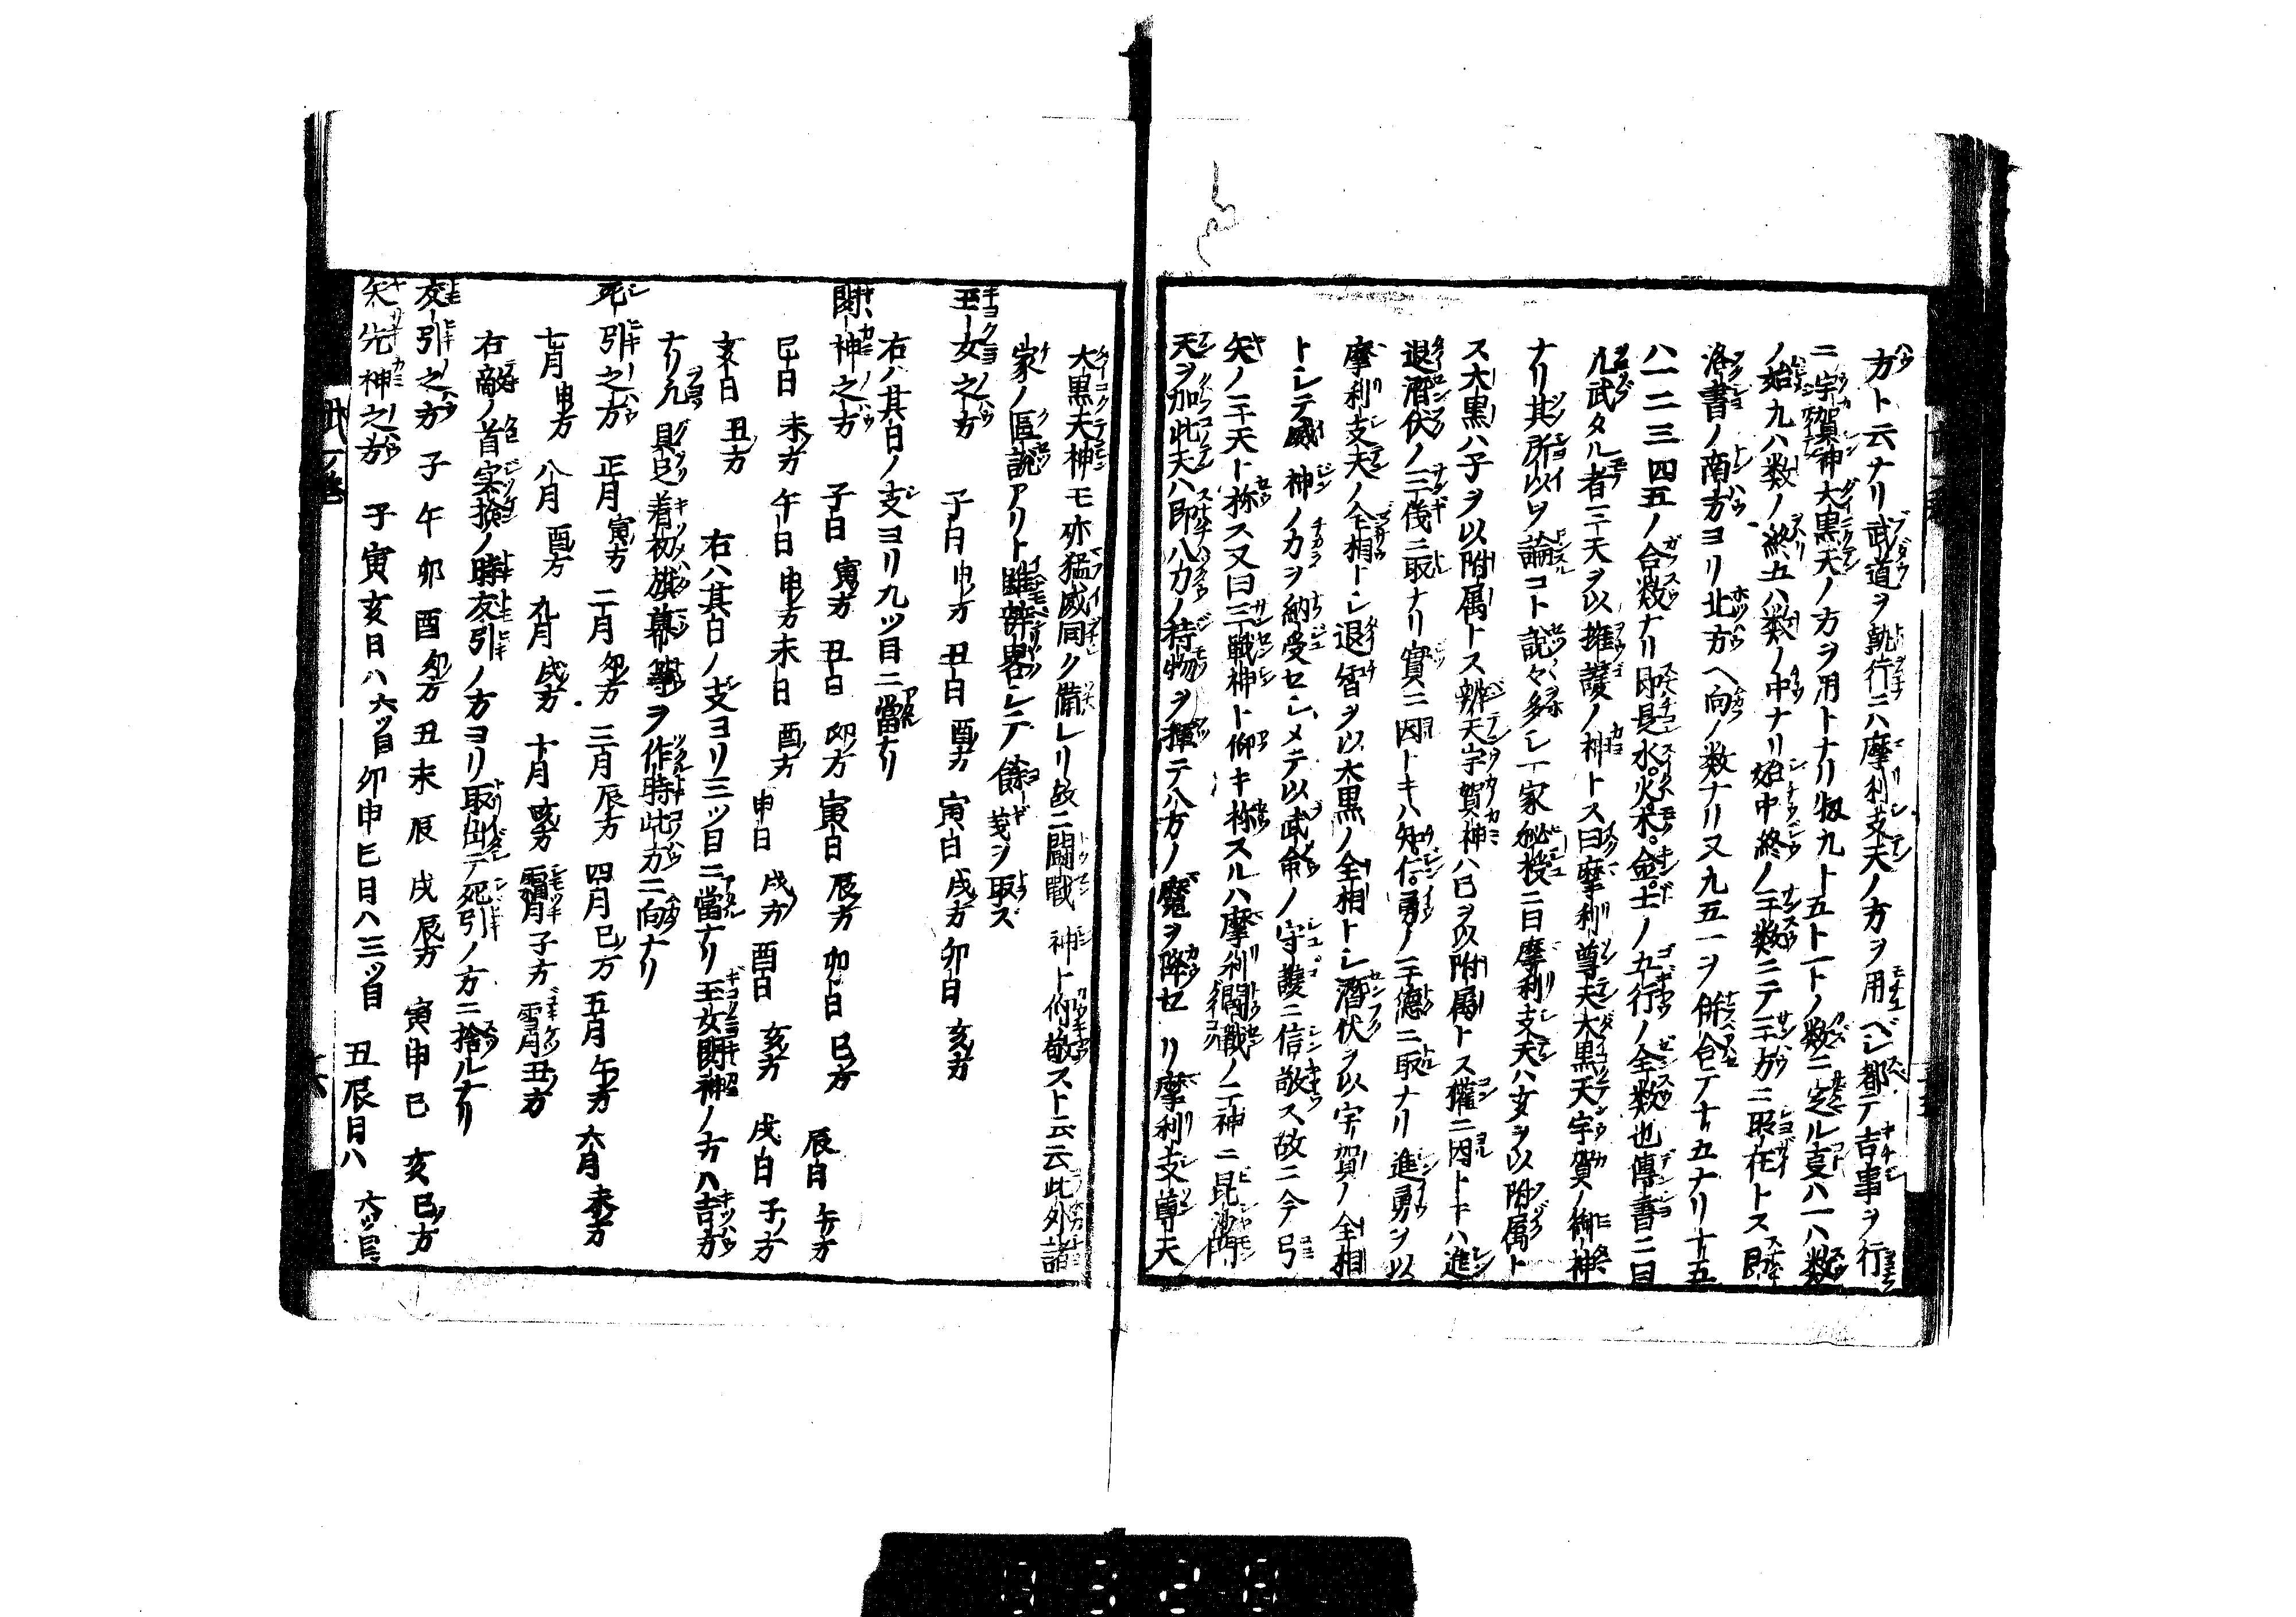 方ト云ナリ武道ヲ執行ニハ摩利支天ノ方ヲ用ベシ都テ吉事ヲ行
ニ宇賀神大黒天ノ方ヲ用トナリ扨九ト五ト一トノ数ニ定ル支ハ一ハ数
ノ始九ハ数ノ終五ハ数ノ中ナリ始中終ノ三数ニテ三方ニ取在トス即
洛書ノ南方ヨリ北方ヘ向ノ数ナリ又九五一ヲ併合テ十五ナリ十五
ハ一二三四五ノ合数ナリ即是水火木金土ノ五行ノ全数也傳書ニ曰
凡武タル者三天ヲ以擁護ノ神トス曰摩利尊天大黒天宇賀ノ御神
ナリ其所以ヲ論コト説々多シ一家秘授ニ曰摩利支天ハ亥ヲ以附属ト
ス大黒ハ子ヲ以附属トス辨天宇賀神ハ巳ヲ以附属トス權ニ因トキハ進
退潜伏ノ三儀ニ取ナリ實ニ因トキハ智仁勇ノ三德ニ取ナリ進勇ヲ以
摩利支天ノ全相トシ退智ヲ以大黒ノ全相トシ潜伏ヲ以宇賀ノ全相
トシテ威神ノカヲ納受セシメテ以武命ノ守護ニ信敬ス故ニ今弓
矢ノ三天ト称ス又曰三戦神ト仰キ称スルハ摩利闘戦ノ二神ニ毘沙門
天ヲ加此天ハ即八カノ持物ヲ揮テ八方ノ魔ヲ降セリ摩利支尊天
大黒天神モ亦猛威同ク備レリ故ニ闘戦神ト仰敬スト云云此外諸
家ノ區説アリト雖辞畧シテ餘義ヲ取ズ
玉女之方 子日申方 丑日酉方 寅日戌方 卯日亥方
右ハ其日ノ支ヨリ九ツ目ニ當ナリ
闘神之方 子日寅方 丑日卯方 寅日辰方 卯日巳方 辰日午方
巳日未方 午日申方 未日酉方 申日戌方 酉日亥方 戌日子ノ方
亥日丑方 右ハ其日ノ支ヨリ三ツ目ニ當ナリ玉女闘神ノ方ハ吉方
ナリ凡具足着初旗幕等ヲ作時此方ニ向ナリ
死引之方 正月寅方 二月卯方 三月辰方 四月巳方 五月午方 六月未方
七月申方 八月酉方 九月戌方 十月亥方 霜月子方 雪月丑方
右敵ノ首実檢ノ時友引ノ方ヨリ取出テ死引ノ方ニ捨ルナリ
友引之方 子午卯酉卯方 丑未辰戌辰方 寅申巳亥巳方
矢先神之方 子寅亥日ハ六ツ目 卯申巳日ハ三ツ目 丑辰日ハ六ツ目